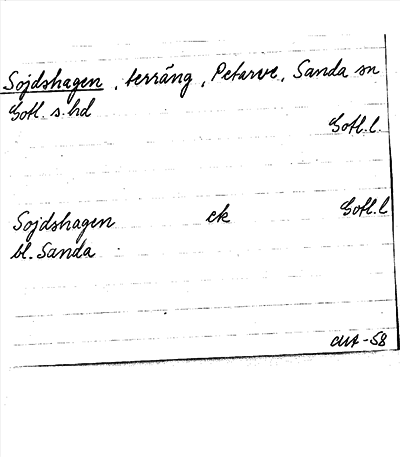 Sojdshagen, terräng, Petarve, Sanda sn
Gotl. s. hd
Gotl. l.
Sojdshagen ek Gotl. l
bl. Sanda